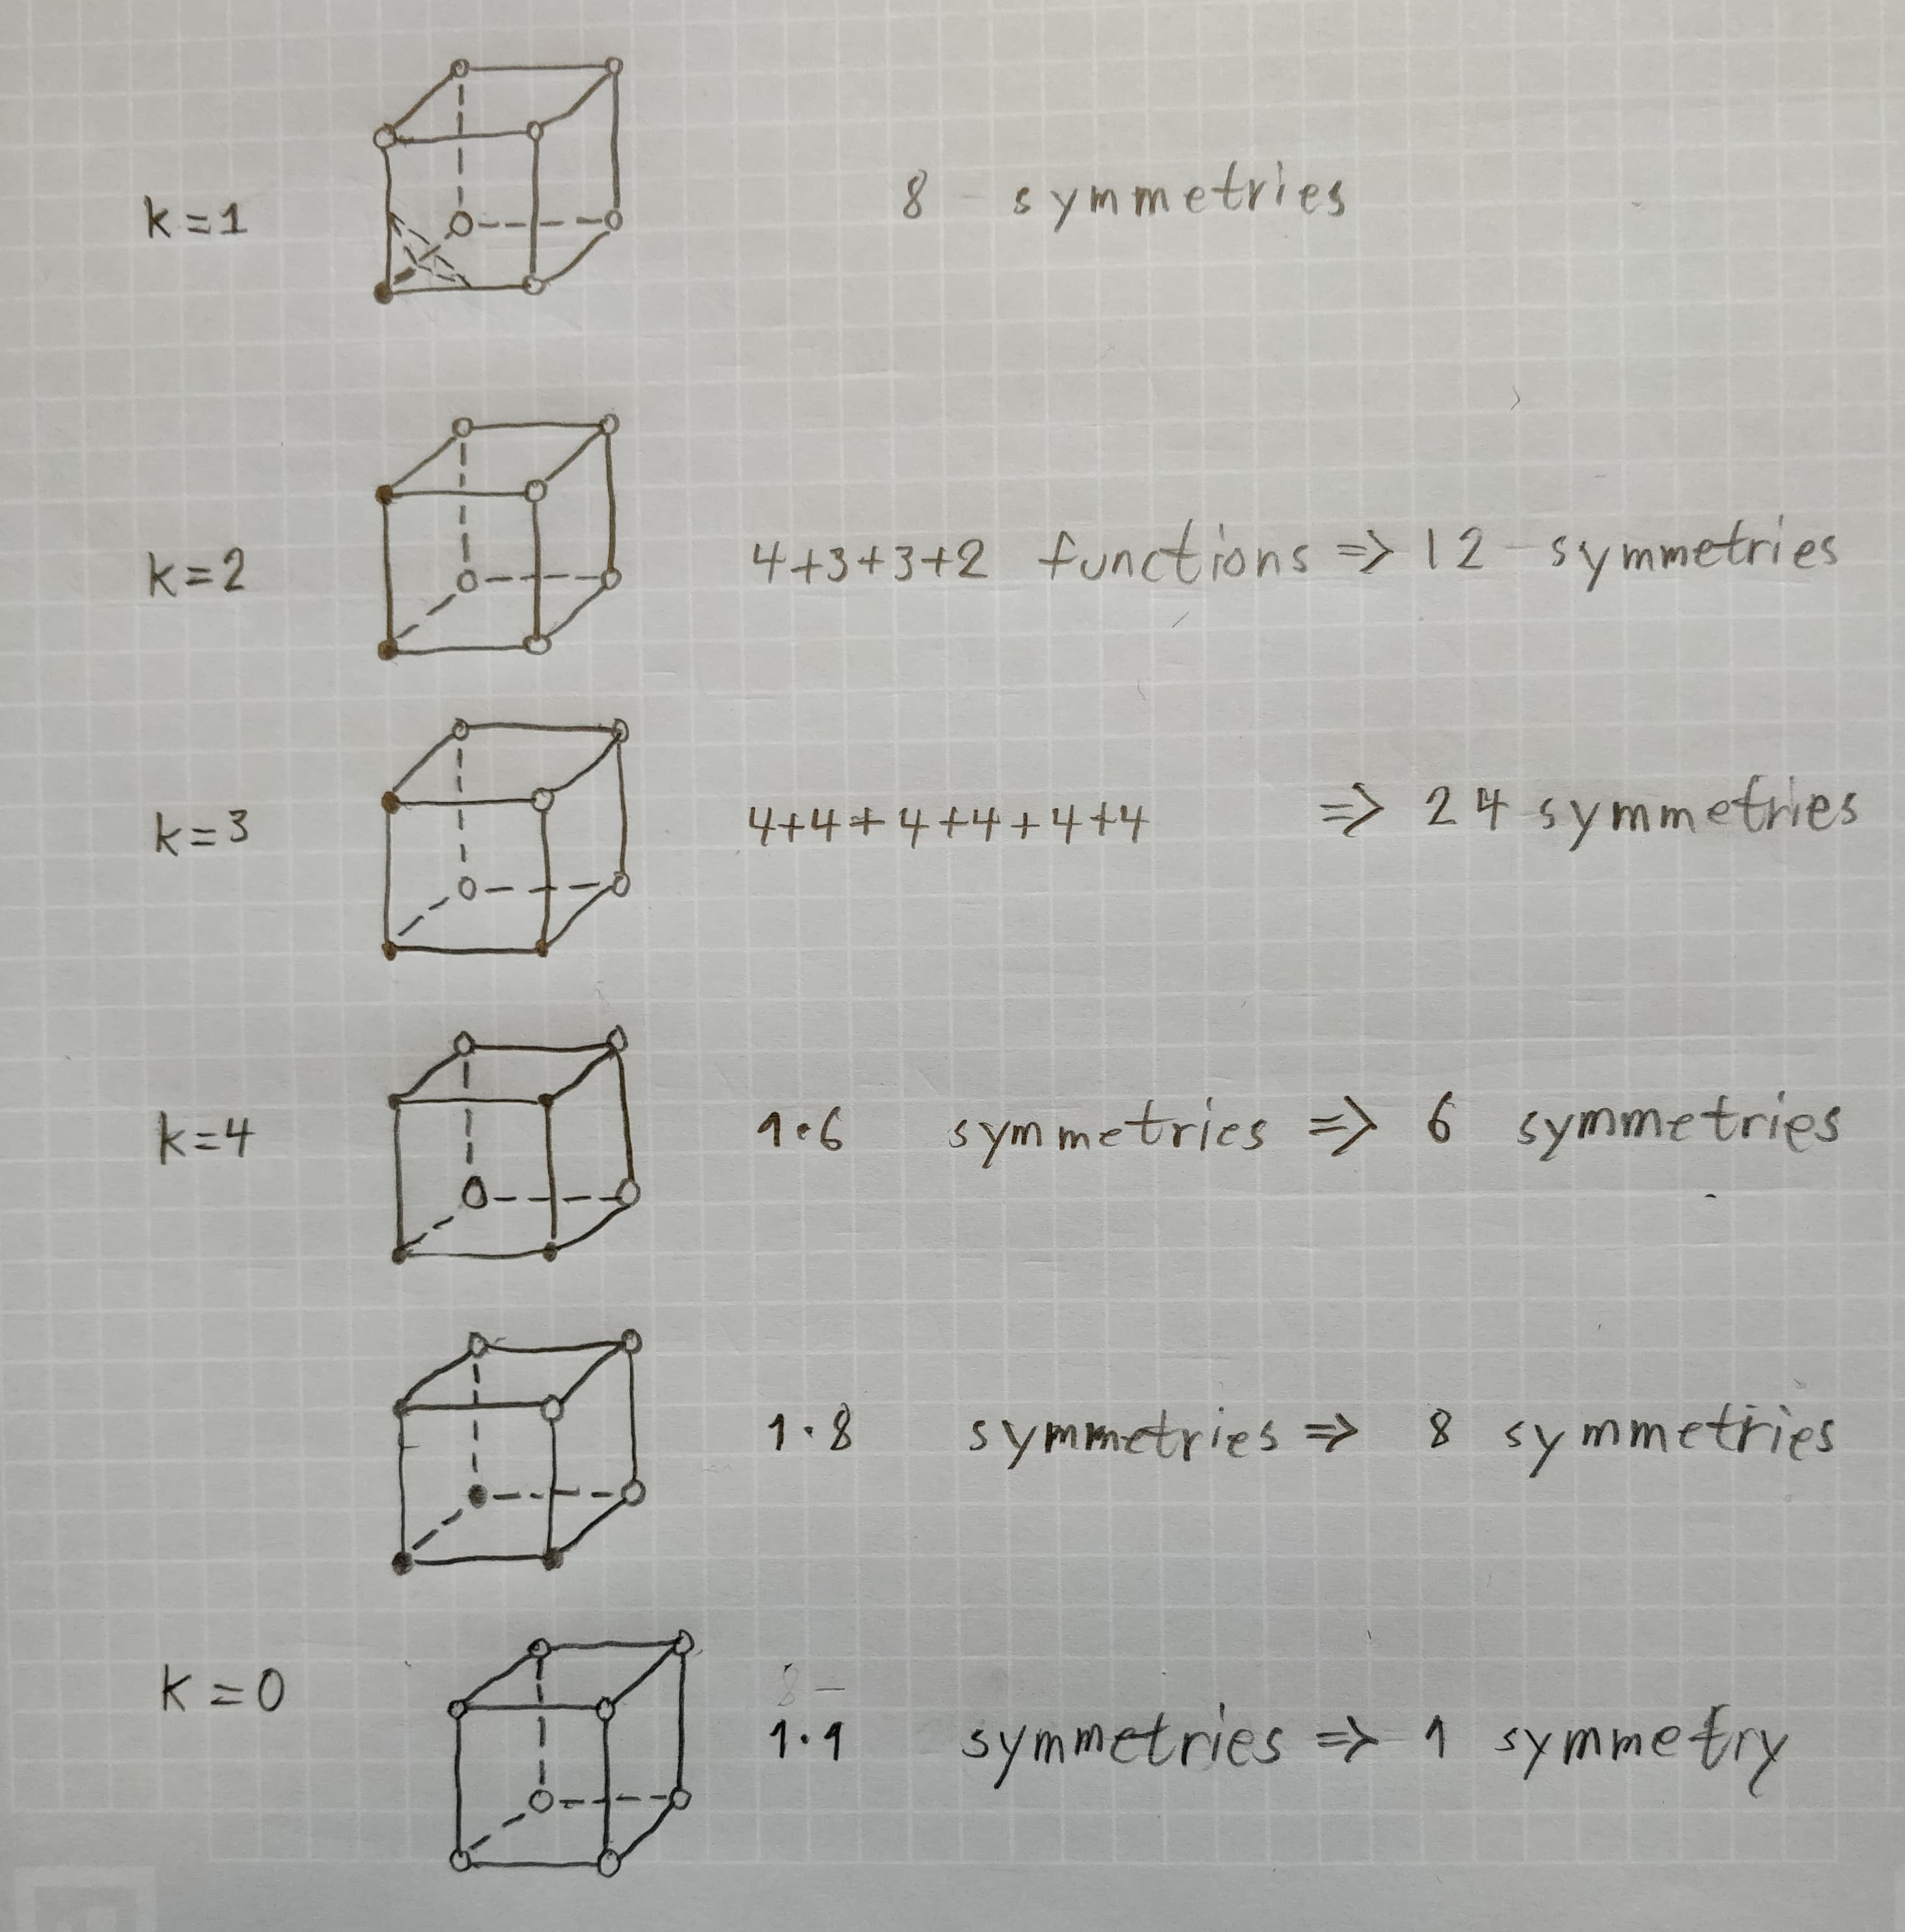 k=1 8 - symmetries
k=2 4+3+3+2 functions => 12 - symmetries
k=3 4+4+4+4+4+4 => 24 symmetries
k=4 1·6 symmetries => 6 symmetries
1·8 symmetries => 8 symmetries
k=0 1·1 symmetries => 1 symmetry